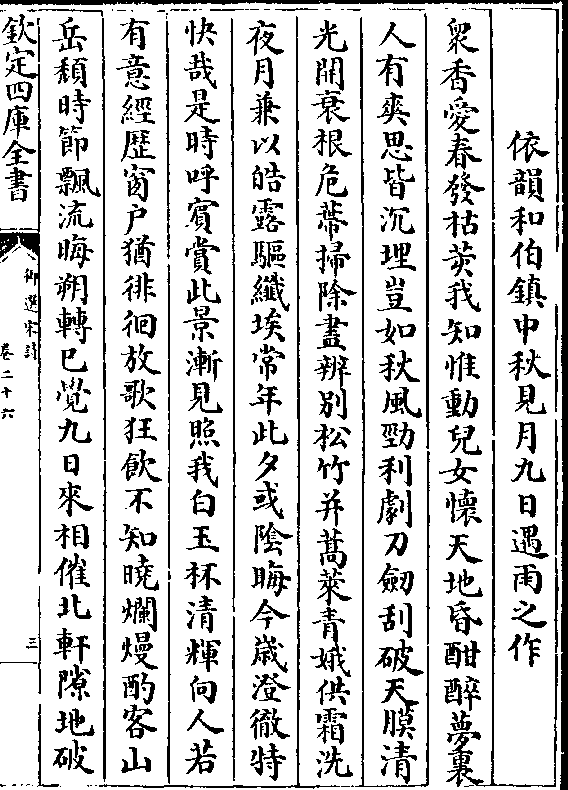 依韻和伯鎮中秋見月九日遇雨之作
衆香愛春發枯荄我知惟動兒女懷天地昏酣醉夢裏
人有爽思皆沉埋豈如秋風勁利劇刀劒刮破天膜清
光開衰根危蔕掃除盡辨别松竹并蒿萊青娥供霜洗
夜月兼以皓露驅纖埃常年此夕或陰晦今歲澄徹特
快哉是時呼賓賞此景漸見照我白玉杯清輝向人若
有意經歷窗户猶徘徊放歌狂飲不知曉爛熳酌客山
岳頽時節飄流晦朔轉已覺九日來相催北軒隙地破
欽定四庫全書
御選宋詩
卷二十六
三